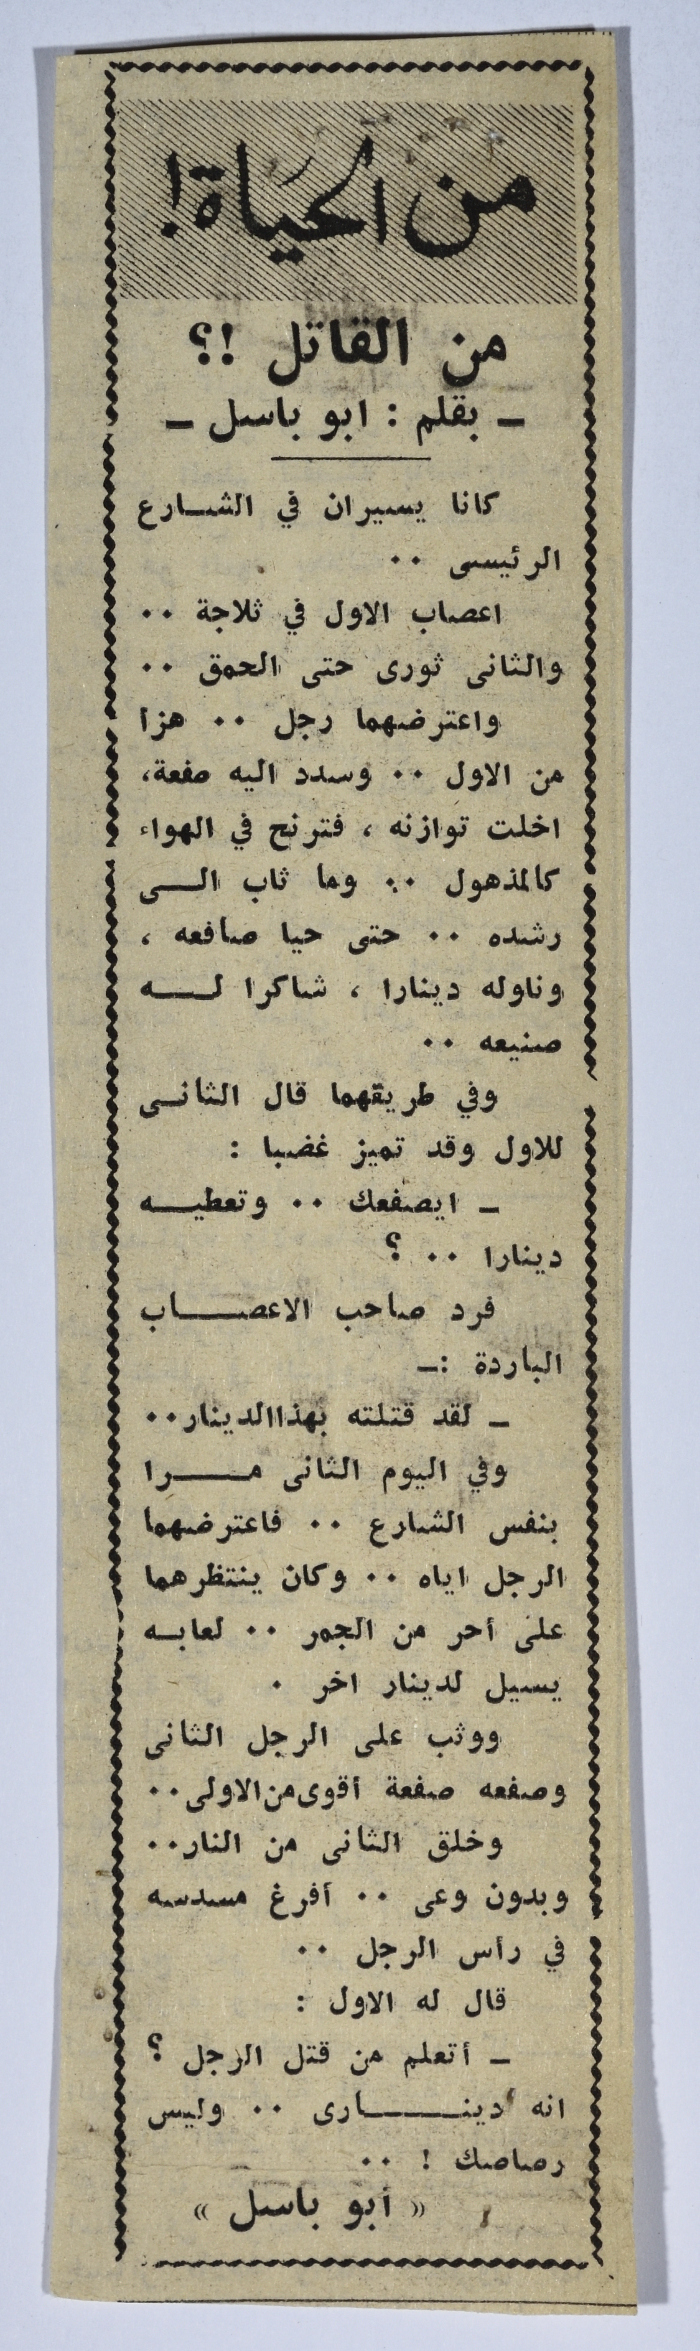 من الحياة!
من القاتل !؟
ـ بقلم : ابو باسل ـ
كانا يسيران في الشــارع
الرئيسى ٠٠
اعصاب الاول في ثلاجة ٠٠
والثانى ثورى حتى الحمق ٠٠
واعترضهما رجل ٠٠ هزأ
من الاول ٠٠ وسدد اليه صفعة،
اخلت توازنه ، فترنح في الهواء
كالمذهول ٠٠ وما ثاب الـــى
رشده ٠٠ حتى حيا صافعه ،
وناوله دينارا ، شاكرا لـــه
صنيعه ٠٠
وفي طريقهما قال الثانــى
للاول وقد تميز غضبا :
ـ ايصفعك ٠٠ وتعطيــه
دينارا ٠٠ ؟
فرد صاحب الاعصــــاب
الباردة :ـ
ـ لقد قتلته بهذاالدينار٠٠
وفي اليوم الثانى مـــرا
بنفس الشارع ٠٠ فاعترضهما
الرجل اياه ٠٠ وكان ينتظرهما
على أحر من الجمر ٠٠ لعابــه
يسيل لدينار اخر ٠
ووثب على الرجل الثانى
وصفعه صفعة أقوى من الاولى٠٠
وخلق الثانى من النار٠٠
وبدون وعى ٠٠ أفرغ مسدسه
في رأس الرجل ٠٠
قال له الاول :
ـ أتعلم من قتل الرجل ؟
انه دينـــــارى ٠٠ وليس
رصاصك ! ٠٠
« أبو باسل »